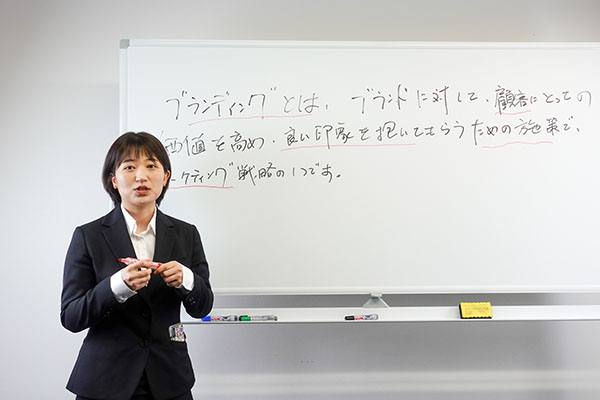 ブランディングとは、ブランドに対して、顧客にとっての
価値を高め、良い印象を抱いてもらうための施策で、
ーケティング戦略の1つです。